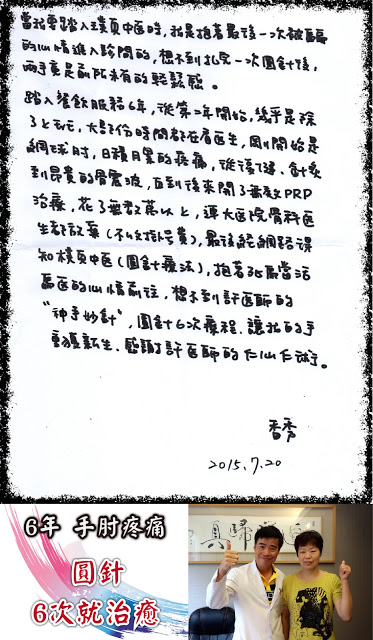 當我要踏入璞真中醫時，我是抱著最後一次被騙
的心情進入診間的，想不到扎完一次圓針後，
兩手竟是前所未有的輕鬆感。
踏入餐飲服務6年，從第二年開始，幾乎是除
了上班，大部份時間都在看医生，剛開始是
網球肘，日積月累的疼痛，從復健、針灸
到昂貴的骨震波，直到後來開了無數PRP
治療，花了無數萬以上，連大医院骨科医
生都放棄，最後經網路得
知璞真中医（圓針療法），抱著死馬當活
馬医的心情前往，想不到許医師的
“神手妙針”，圓針6次療程，讓我的手
重獲新生，感謝許医師的仁心仁術。
香秀
2015.7.20
6年 手肘疼痛
圓針
6次就治癒
真歸璞返